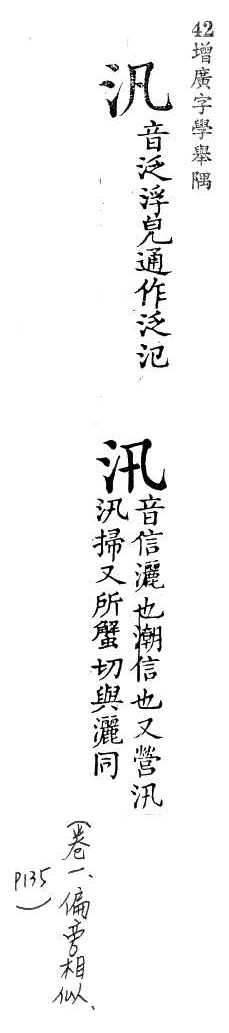 42增廣字學舉隅
汎
音泛浮皃通作泛氾
汛
音信灑也潮信也又營汛
汛掃又所蟹切與灑同
(卷一、偏旁相似、
P135)